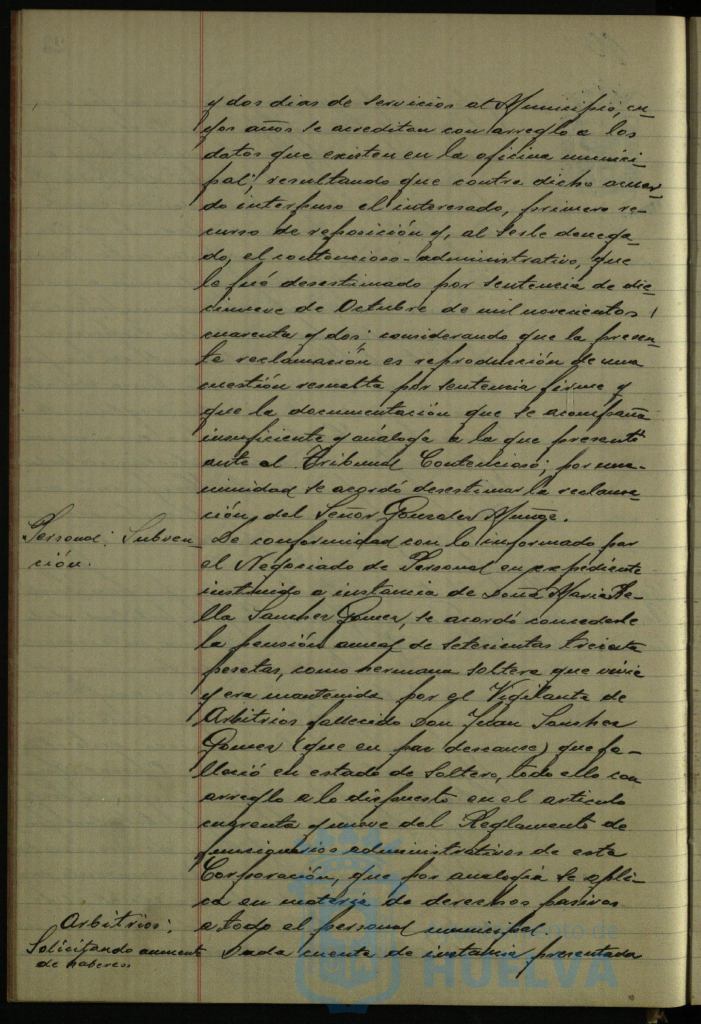 y dos dias de servicios al Municipio, cu-
yos años se acreditan con arreglo a los
datos que existen en la oficina munici-
pal; resultando que contra dicho acuer-
do interpuso el interesado, primero re-
curso de reposición y, al serle denega-
do, el contencioso-administrativo, que
le fué desestimado por sentencia de die-
cinueve de Octubre de mil novecientos
cuarenta y dos; considerando que la presen-
te reclamación es reproducción de una
cuestión resuelta por sentencia firme y
que la documentación que se acompaña
insuficiente y análoga a la que presentó
ante el Tribunal Contencioso; por una-
nimidad se acordó desestimar la reclama-
ción del Señor Gonzalez Muñoz.
Personal: Subven-
ción.
De conformidad con lo informado por
el Negociado de Personal en expediente
instruido a instancia de Doña Maria Be-
lla Sanchez Gomez, se acordó concederle
la pensión anual de setecientas treinta
pesetas, como hermana soltera que vivia
y era mantenida por el Vigilante de
Arbitrios fallecido Don Juan Sanchez
Gomez (que en paz descanse) que fa-
lleció en estado de soltero, todo ello con
arreglo a lo dispuesto en el articulo
cuarenta y nueve del Reglamento de
funcionarios administrativos de esta
Corporación, que por analogia se apli-
ca en materia de derechos pasivos
a todo el personal municipal.
Arbitrios:
Solicitando aumento
de haberes
Dada cuenta de instancia presentada
Ayuntamiento de
HUELVA